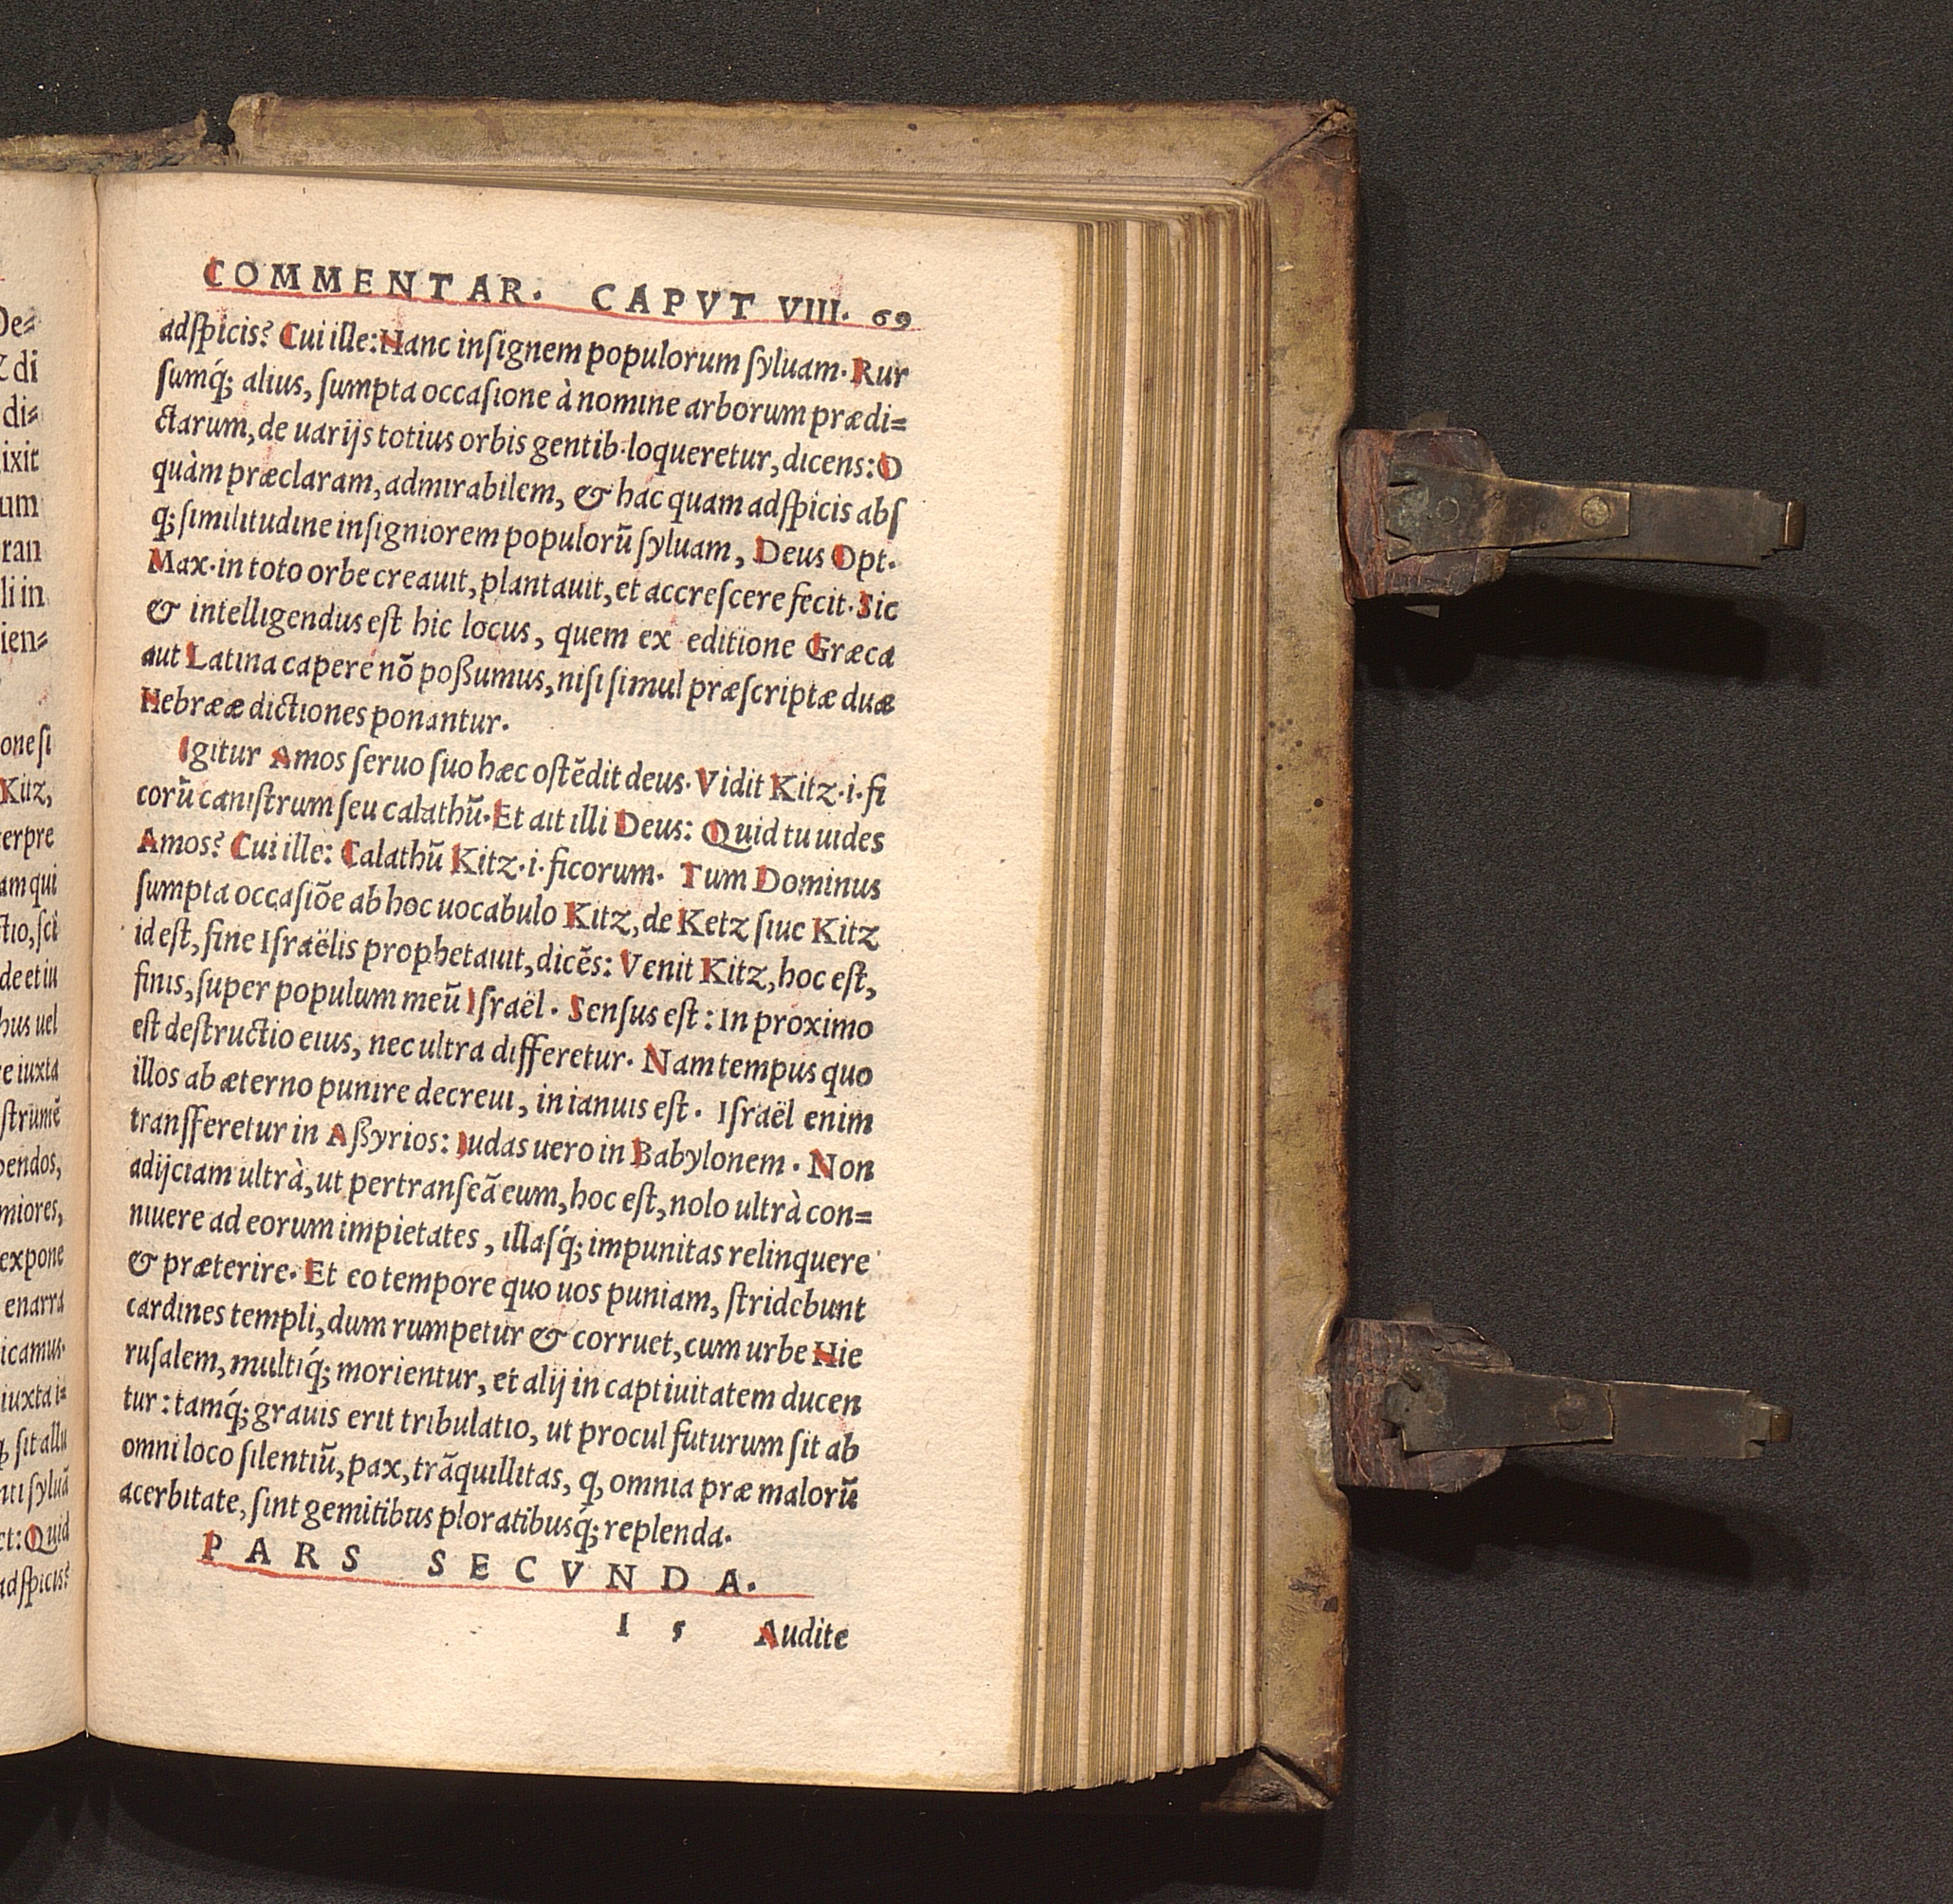 De=
& di
di=
ixit
um
ran
li in
ien=
one ſi
Kitz,
terpre
am qui
ctio, ſci
de et iu
bus uel
re iuxta
ſtrumē
bendos,
miores,
expone
enarra
icamus.
iuxta i=
ꝙ ſit allu
nti ſyluā
ct: Quid
adſpicis?
COMMENTAR. CAPVT VIII. 69
adſpicis? Cui ille: Hanc inſignem populorum ſyluam. Rur
ſumq́; alius, ſumpta occaſione à nomine arborum prædi=
ctarum, de uarijs totius orbis gentib. loqueretur, dicens: O
quàm præclaram, admirabilem, & hac quam adſpicis abſ
q; ſimilitudine inſigniorem populorū ſyluam, Deus Opt.
Max. in toto orbe creauit, plantauit, et accreſcere fecit. Sic
& intelligendus eſt hic locus, quem ex editione Græca
aut Latina capere nō poßumus, niſi ſimul præſcriptæ duæ
Hebrææ dictiones ponantur.
Igitur Amos ſeruo ſuo hæc oſtēdit deus. Vidit Kitz. i. fi
corū caniſtrum ſeu calathū. Et ait illi Deus: Quid tu uides
Amos? Cui ille: Calathū Kitz. i. ficorum. Tum Dominus
ſumpta occaſiōe ab hoc uocabulo Kitz, de Ketz ſiue Kitz
id eſt, fine Iſraëlis prophetauit, dicēs: Venit Kitz, hoc eſt,
finis, ſuper populum meū Iſraël. Senſus eſt: In proximo
eſt deſtructio eius, nec ultra differetur. Nam tempus quo
illos ab æterno punire decreui, in ianuis eſt. Iſraël enim
tranſferetur in Aßyrios: Iudas uero in Babylonem. Non
adijciam ultrà, ut pertranſeā eum, hoc eſt, nolo ultrà con=
niuere ad eorum impietates, illaſq́; impunitas relinquere
& præterire. Et eo tempore quo uos puniam, ſtridebunt
cardines templi, dum rumpetur & corruet, cum urbe Hie
ruſalem, multiq́; morientur, et alij in captiuitatem ducen
tur: tamq́; grauis erit tribulatio, ut procul futurum ſit ab
omni loco ſilentiū, pax, trāquillitas, ꝙ, omnia præ malorū
acerbitate, ſint gemitibus ploratibusq́; replenda.
PARS SECVNDA.
I 5 Audite